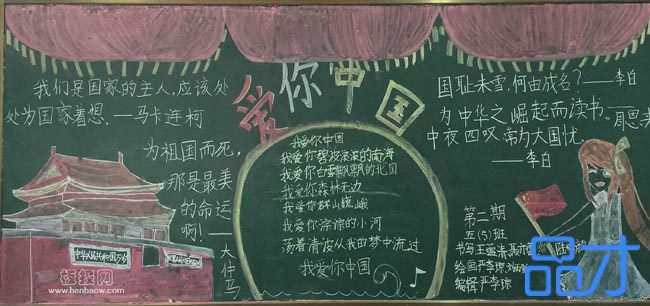 爱你中国
我们是国家的主人,应该处
处为国家着想.——马卡连柯
为祖国而死,
那是最美
的命运
啊!——大仲马
中华人民共和国万岁
我爱你中国
我爱你碧波滚滚的南海
我爱你白雪飘飘的北国
我爱你森林无边
我爱你群山巍峨
我爱你淙淙的小河
荡着清波从我的梦中流过
我爱你中国
国耻未雪,何由成名?——李白
为中华之崛起而读书.——周恩来
中夜四叹,常为大国忧.
——李白
第二期
五(5)班
书写
绘画
编辑
板报网
www.banbaow.com
品才